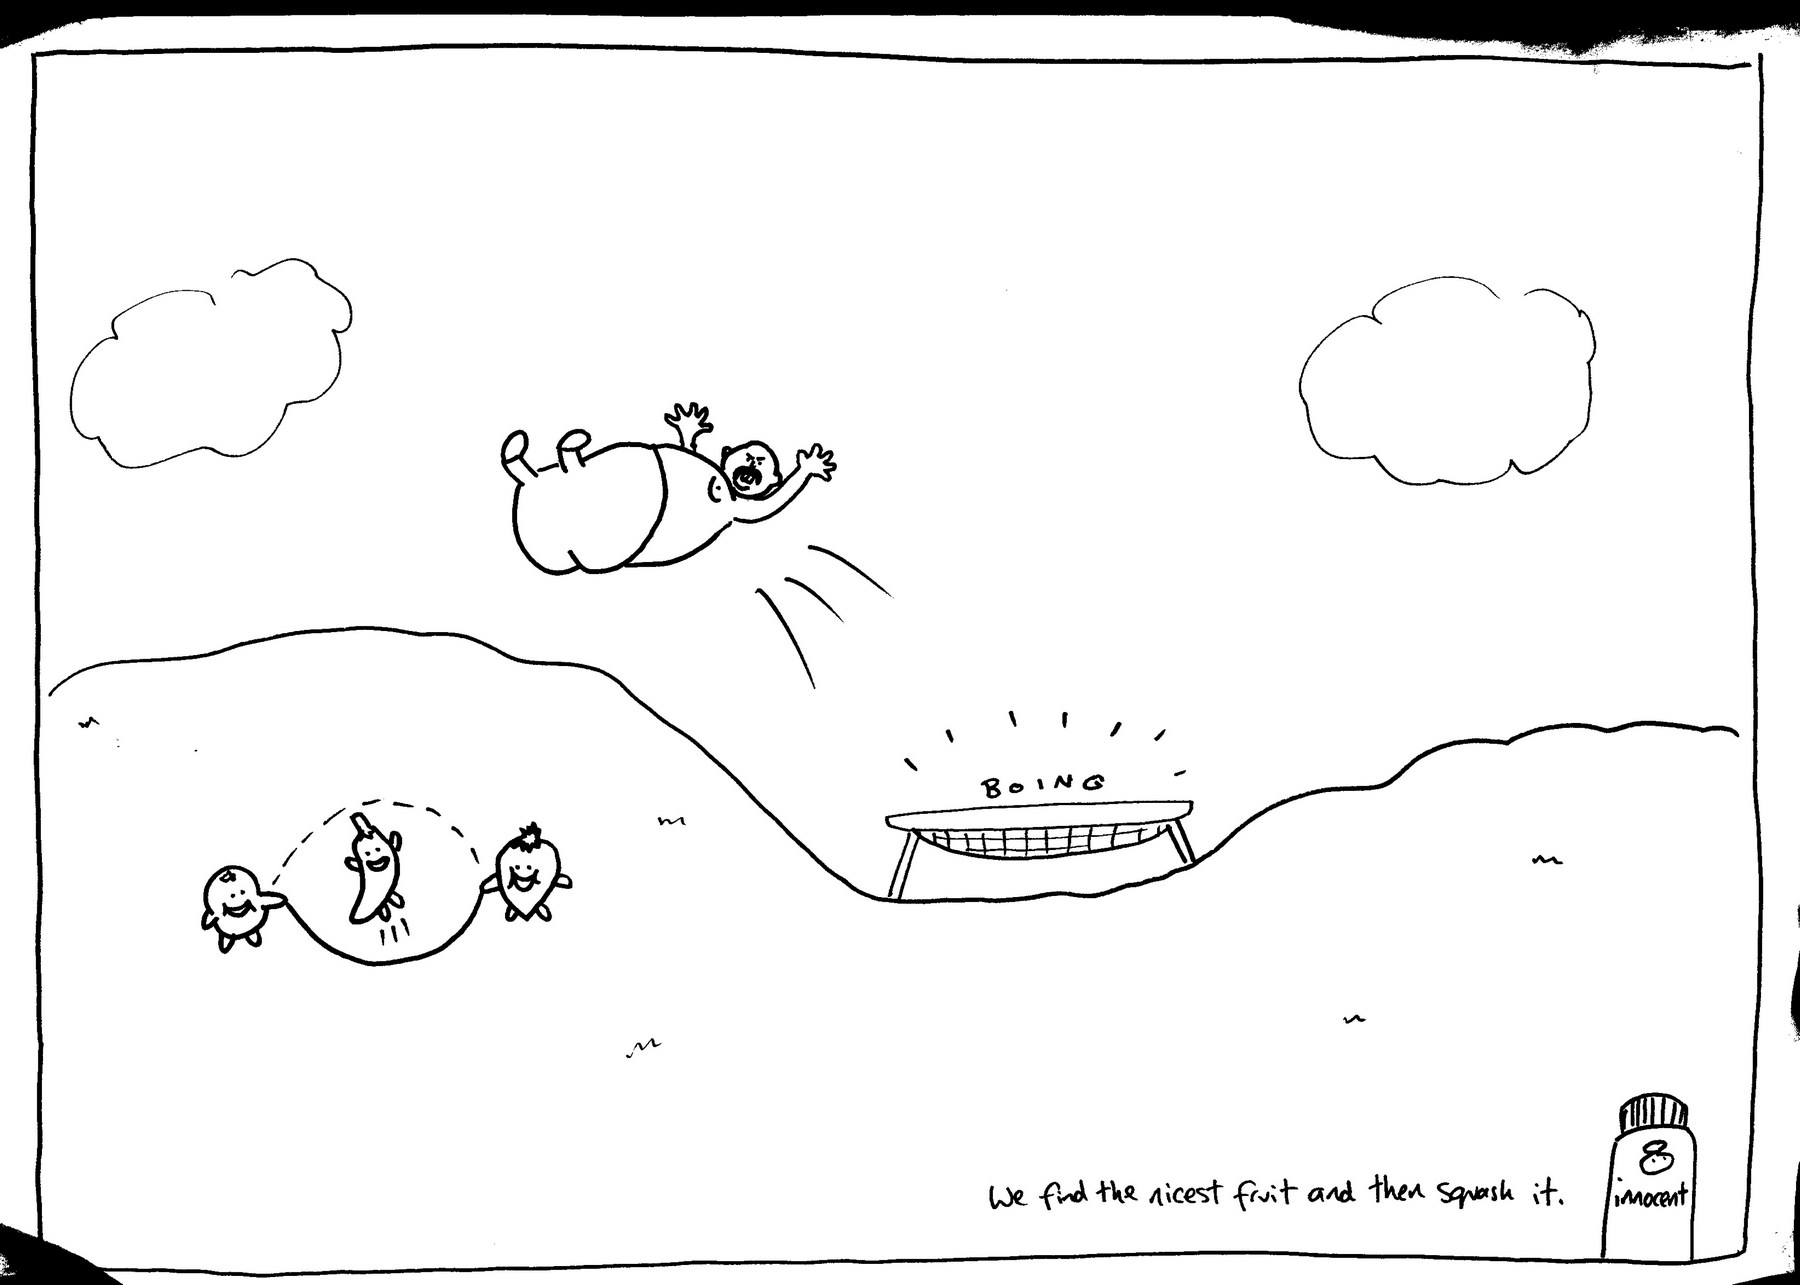 BOING
We find the nicest fruit and then squash it.
innocent